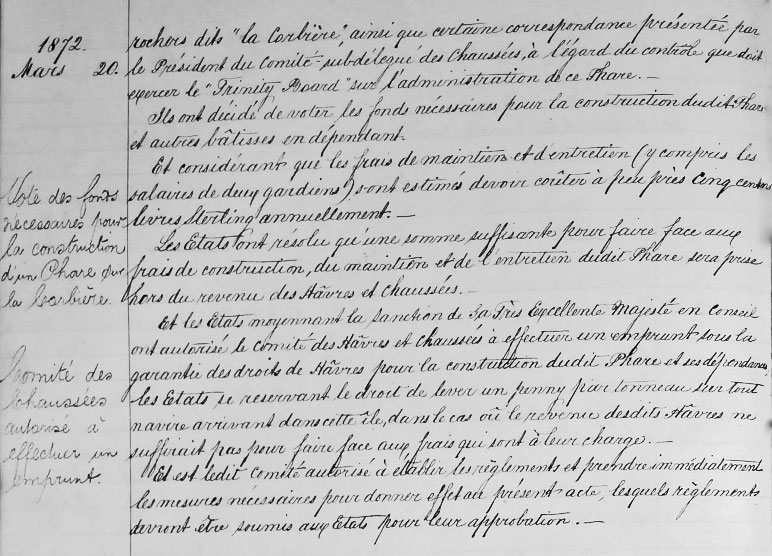 1872.
Mars 20.
rochers dits "la Corbière", ainsi que certaine correspondance présentée par
le Président du Comité subdélégué des Chaussées, à l'égard du contrôle que doit
exercer le "Trinity Board" sur l'administration de ce Phare. —
Ils ont décidé de voter les fonds nécessaires pour la construction dudit Phare
et autres bâtisses en dépendant.
Et considérant que les frais de maintien et d'entretien (y compris les
salaires de deux gardiens) sont estimés devoir coûter à peu près cinq cents
livres Sterling annuellement. —
Les Etats ont résolu qu'une somme suffisante pour faire face aux
frais de construction, du maintien et de l'entretien dudit Phare sera prise
hors du revenu des Hâvres et Chaussées. —
Et les Etats moyennant la Sanction de Sa Très Excellente Majesté en Conseil
ont autorisé le Comité des Hâvres et Chaussées à effectuer un emprunt sous la
garantie des droits de Hâvres pour la construction dudit Phare et ses dépendances
les Etats se reservant le droit de lever un penny par tonneau sur tout
navire arrivant dans cette île, dans le cas où le revenu desdits Hâvres ne
suffirait pas pour faire face aux frais qui sont à leur charge. —
Et est ledit Comité autorisé à établir les règlements et prendre immédiatement
les mesures necessaires pour donner effet au présent acte, lesquels règlements
devront être soumis aux Etats pour leur approbation. —
Vote des fonds
nécessaires pour
la construction
d'un Phare sur
la Corbière
Comité des
Chaussées
autorisé à
effectuer un
emprunt.